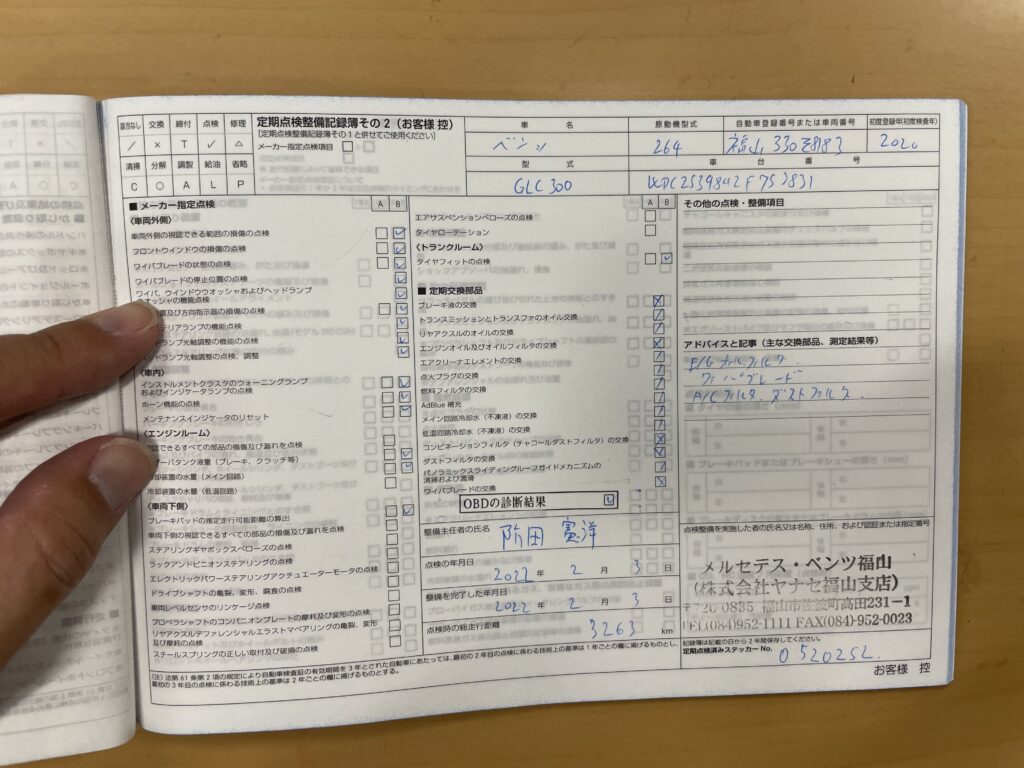 該当なし 交換 締付 点検 修理
/ × T ✓ △
清掃 分解 調製 給油 省略
C ○ A L P
定期点検整備記録簿その2（お客様 控）
[定期点検整備記録簿その1と併せてご使用ください]
メーカー指定点検項目 □
車名 原動機型式 自動車登録番号または車両番号 初度登録年(初度検査年)
ベンツ 264 福山 330 2020
型式 車台番号
GLC300
■ メーカー指定点検 A B
〈車両外側〉
車両外側の視認できる範囲の損傷の点検
フロントウインドウの損傷の点検
ワイパブレードの状態の点検
ワイパブレードの停止位置の点検
ワイパ、ウインドウウオッシャおよびヘッドランプ
ウオッシャの機能点検
置及び方向指示器の損傷の点検
テリアランプの機能点検
ドランプ光軸調整の機能の点検
ドランプ光軸調整の点検、調整
〈車内〉
インストルメントクラスタのウォーニングランプ
およびインジケータランプの点検
ホーン機能の点検
メンテナンスインジケータのリセット
〈エンジンルーム〉
認できるすべての部品の損傷及び漏れを点検
ーバタンク液量（ブレーキ、クラッチ等）
却装置の水量（メイン回路）
冷却装置の水量（低温回路）
〈車両下側〉
ブレーキパッドの推定走行可能距離の算出
車両下側の視認できるすべての部品の損傷及び漏れを点検
ステアリングギヤボックスベローズの点検
ラックアンドピニオンステアリングの点検
エレクトリックパワーステアリングアクチュエーターモータの点検
ドライブシャフトの亀裂、変形、腐食の点検
車両レベルセンサのリンケージ点検
プロペラシャフトのコンパニオンプレートの摩耗及び変形の点検
リヤアクスルデファレンシャルエラストマベアリングの亀裂、変形
及び摩耗の点検
スチールスプリングの正しい取付及び破損の点検
A B
エアサスペンションベローズの点検
タイヤローテーション
〈トランクルーム〉
タイヤフィットの点検
■ 定期交換部品
ブレーキ液の交換
トランスミッションとトランスファのオイル交換
リヤアクスルのオイルの交換
エンジンオイル及オイルフィルタの交換
エアクリーナエレメントの交換
点火プラグの交換
燃料フィルタの交換
AdBlue 補充
メイン回路冷却水（不凍液）の交換
低温回路冷却水（不凍液）の交換
コンビネーションフィルタ（チャコールダストフィルタ）の交換
ダストフィルタの交換
パノラミックスライディングルーフガイドメカニズムの
清掃および潤滑
ワイパブレードの交換
OBDの診断結果
整備主任者の氏名
点検の年月日
2022 年 2 月 3 日
整備を完了した年月日
2022 年 2 月 3 日
点検時の総走行距離
3263 km
その他の点検・整備項目
アドバイスと記事（主な交換部品、測定結果等）
E/G オイル.フィルタ
ワイパブレード
A/Cフィルタ. ダストフィルタ
点検整備を実施した者の氏名又は名称、住所、および認証または指定番号
メルセデス・ベンツ福山
(株式会社ヤナセ福山支店)
〒720-0835 福山市佐波町高田231-1
TEL(084)952-1111 FAX(084)952-0023
記録簿は記載の日から2年間保存してください。
定期点検済みステッカー No. 0520252
(注) 法第61条第2項の規定により自動車検査証の有効期間を3年とされた自動車にあたっては、最初の2年目の点検に係わる技術上の基準は1年ごとの欄に掲げるものとし、
最初の3年目の点検に係わる技術上の基準は2年ごとの欄に掲げるものとする。
お客様 控